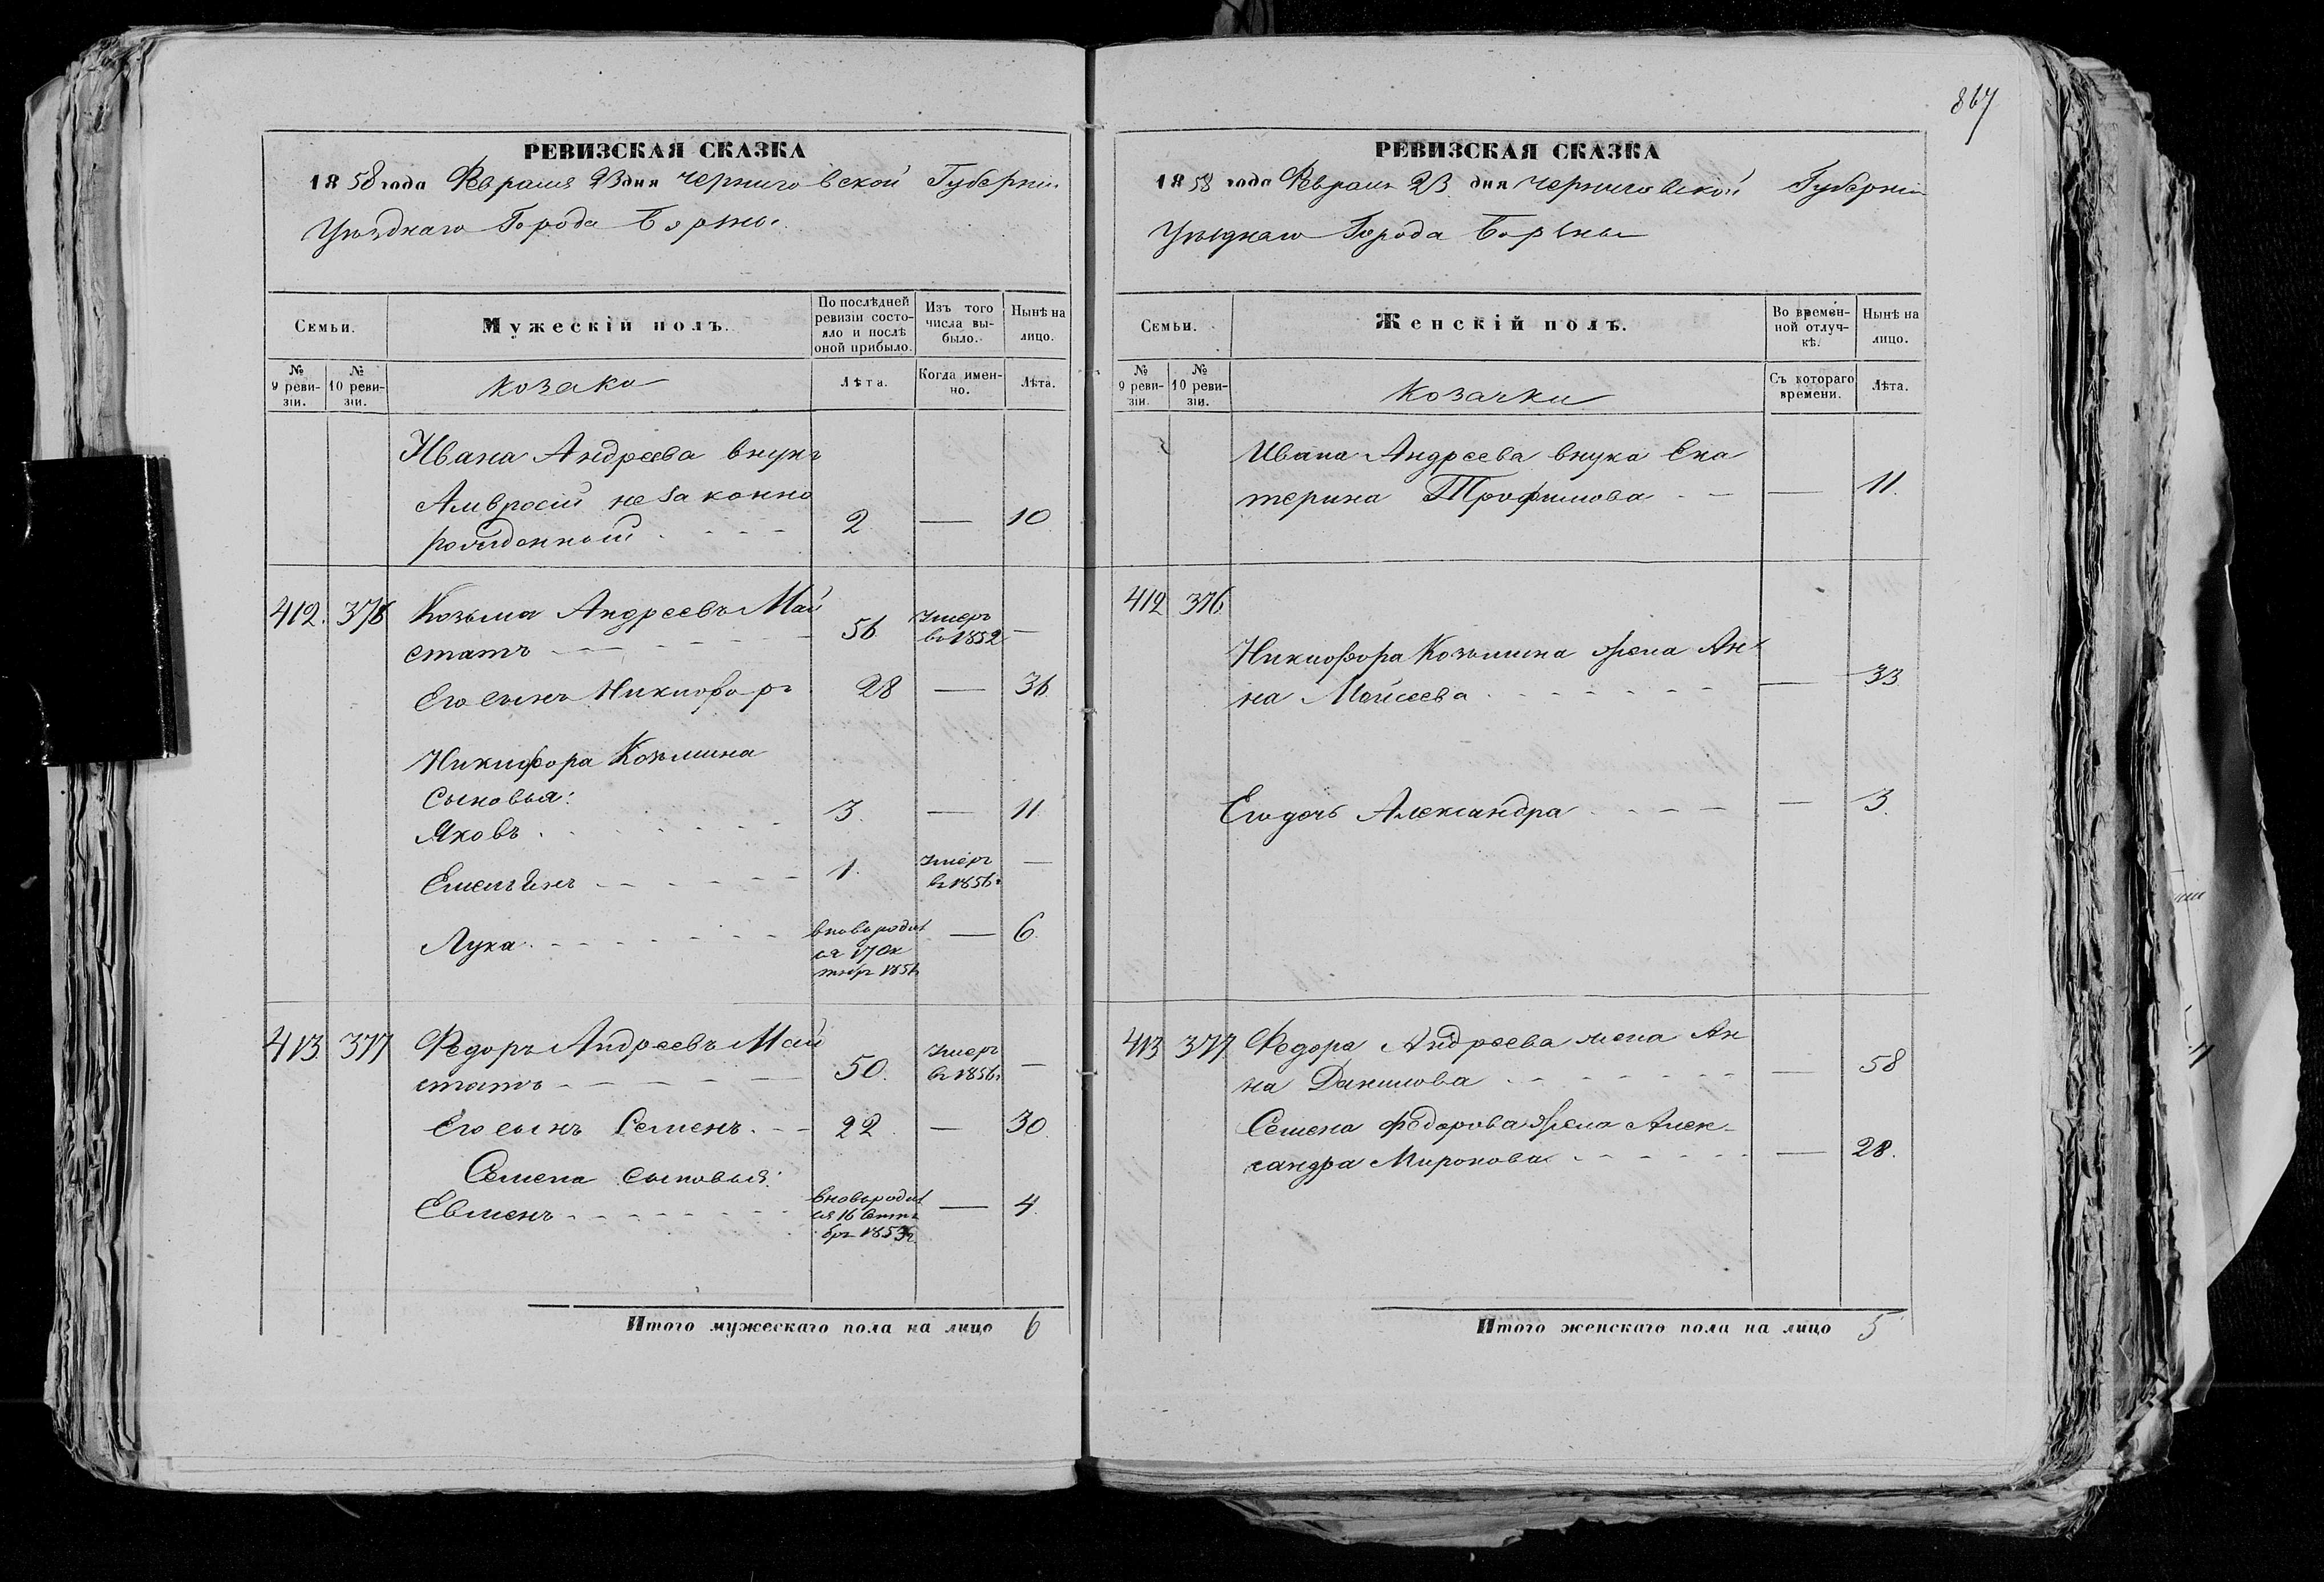 867
РЕВИЗСКАЯ СКАЗКА
1858 года Февраля 23 дня Черниговской Губернии
Уѣзднаго Города Борзны
Семьи.
Мужескій полъ.
По послѣдней ревизіи состояло и послѣ оной прибыло.
Изъ того числа выбыло.
Нынѣ на лицо.
№ 9 ревизіи.
№ 10 ревизіи.
Козаки
Лѣта.
Когда именно.
Лѣта.
Ивана Андреева внукъ
Амвросій незаконно
рожденный 2 — 10
412. 376 Козьма Андреевъ Май
статъ 56 Умеръ въ 1852 —
Его сынъ Никифоръ 28 — 36
Никифора Козьмина
Сыновья:
Яковъ 3. — 11.
Емельянъ 1. Умеръ въ 1856 —
Лука вновь родил
ся 17 Ок
тябр 1851 — 6.
413 377 Федоръ Андреевъ Май
статъ 50. Умеръ въ 1856 —
Его сынъ Семенъ 22 — 30.
Семена сыновья:
Евменъ вновь родил
ся 16 Сентя
бря 1853г. — 4.
Итого мужескаго пола на лицо 6
РЕВИЗСКАЯ СКАЗКА
1858 года Февраля 23 дня Черниговской Губерніи
Уѣзднаго Города Борзны
Семьи.
Женскій полъ.
Во временной отлучкѣ.
Нынѣ на лицо.
№ 9 ревизіи.
№ 10 ревизіи.
Козачки
Съ котораго времени.
Лѣта.
Ивана Андреева внука Ека
терина Трофимова — 11.
412 376
Никифора Козьмина жена Ан
на Мойсеева — 33
Его дочь Александра — 3.
413 377 Федора Андреева жена Ан
на Данилова — 58
Семена Федорова жена Алек-
сандра Миронова — 28.
Итого женскаго пола на лицо 5